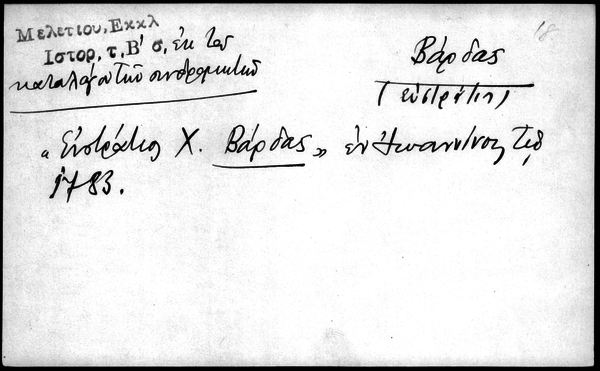 Μελετιου, Εκκλ
Ιστορ, τ, Β' σ, εκ του
καταλόγου τῶν συνδρομητῶν
18
Βάρδας
(Εὐστράτιος)
"Εὐστράτιος Χ. Βάρδας" ἐν Ἰωαννίνοις τῷ
1783.